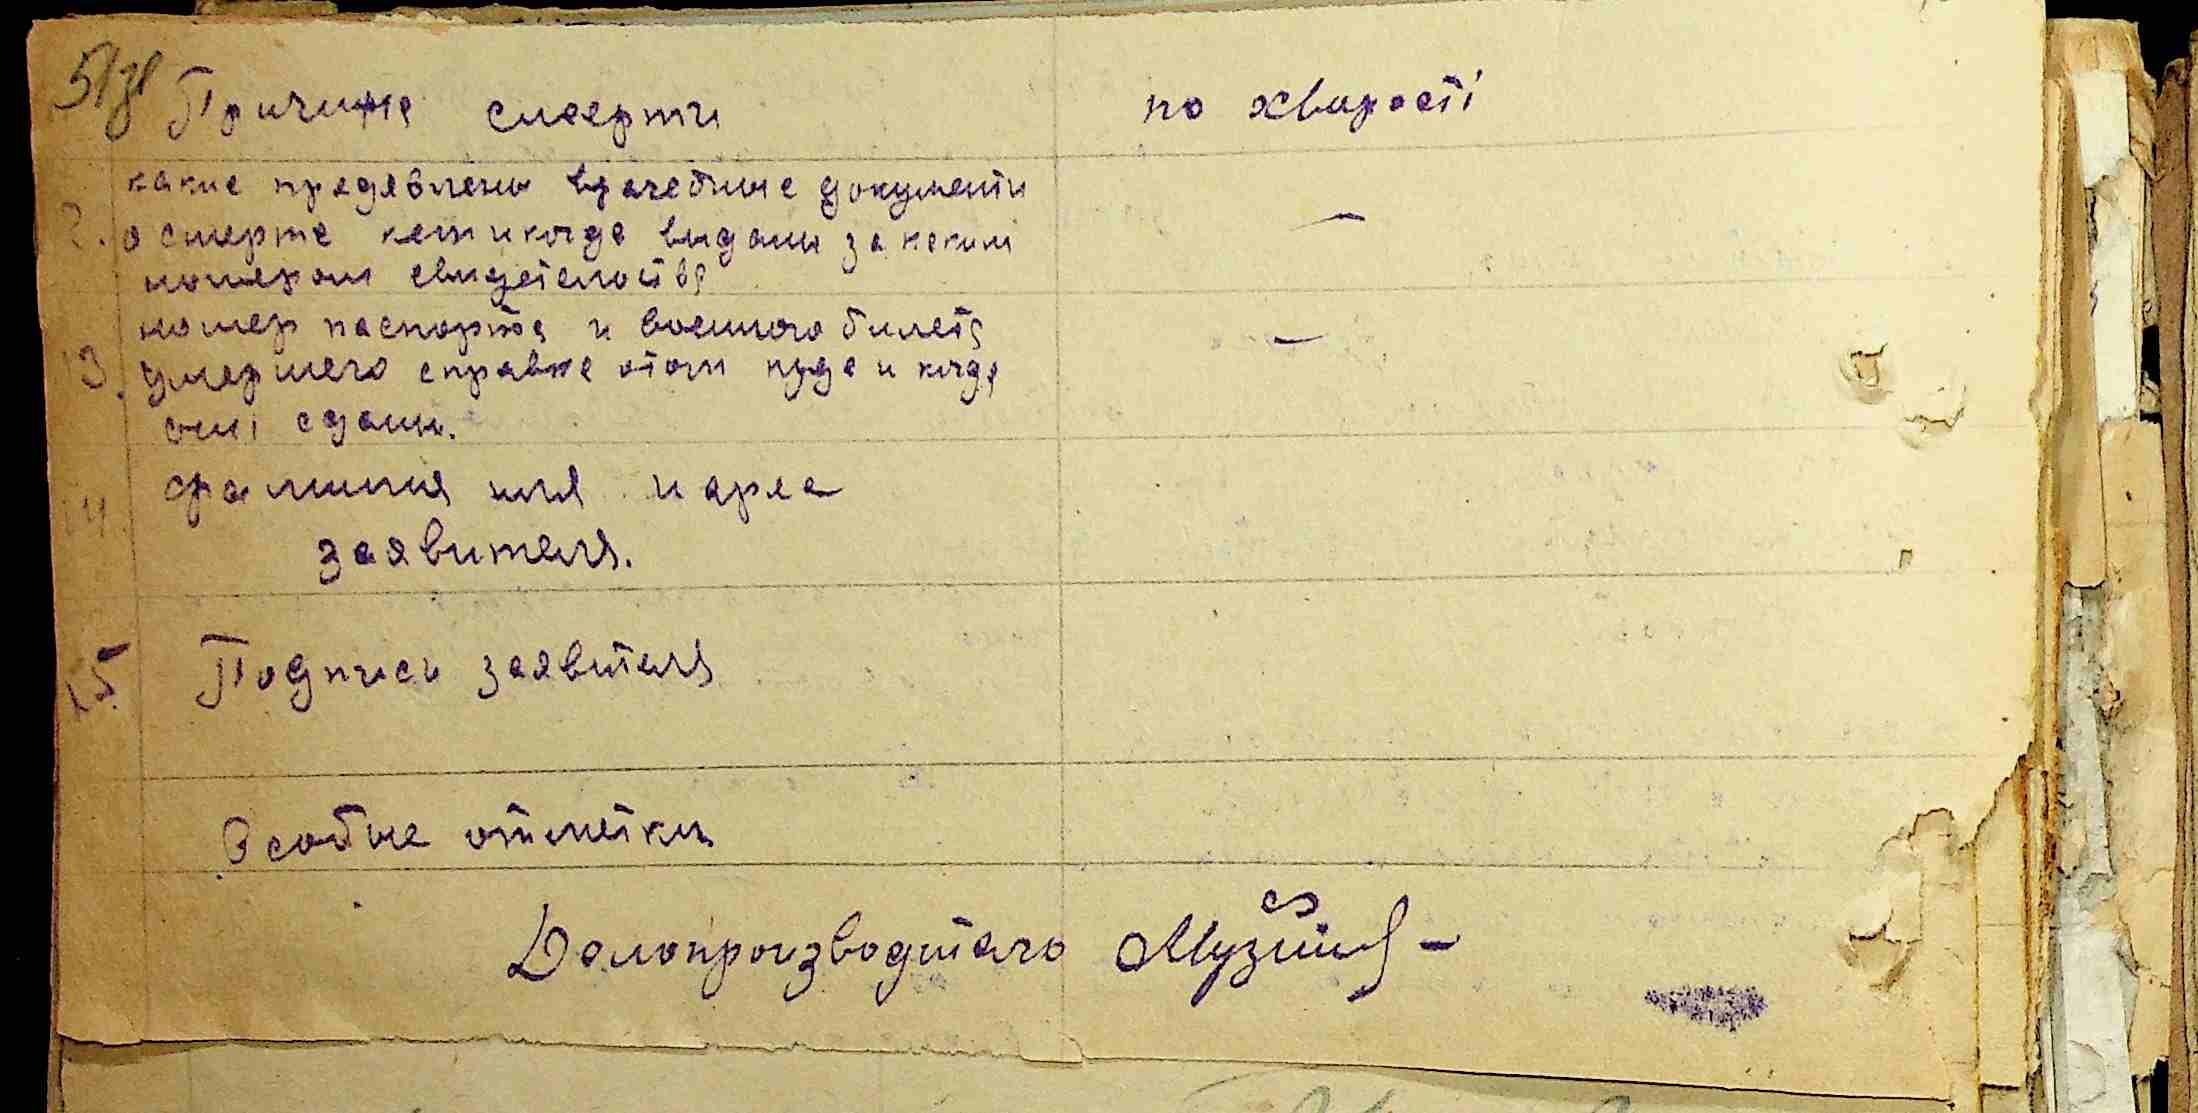 51зв
Причина смерти по хворості
какие предявлены врачебные документи
2. о смерте кем и когда выданы за каким
номером свидетельства
номер паспорта и военного билета
13. умершего справке отом куда и когда
они сданы.
14. фамилия имя и
заявителя.
15 Подпись заявителя
Особые отметки
Делопроизводитель